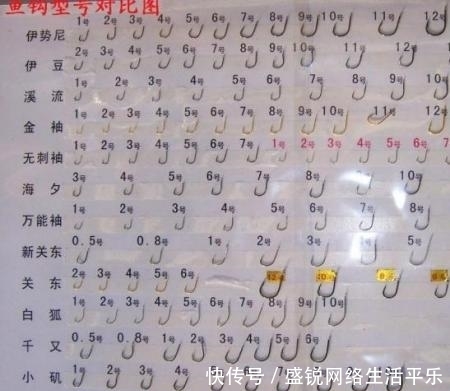 鱼钩型号对比图
伊势尼 1号 2号 3号 4号 5号 6号 7号 8号 9号 10号 11号 12号
伊豆 2号 3号 4号 5号 6号 7号 8号 9号 10号 11号 12号
溪流 1号 2号 3号 4号 5号 6号 7号 8号 9号 10号
金袖 1号 2号 3号 4号 5号 6号 7号 8号 9号 10号 11号 12号
无刺袖 1号 2号 3号 4号 5号 6号 7号 1号 2号 3号 4号 5号 6号
海夕 3号 4号 5号 6号 7号 8号 9号 10号
万能袖 1号 2号 3号 4号 5号 6号 7号 8号
新关东 0.5号 0.8号 1号 2号 3号 4号 5号
关东 2号 3号 4号 5号 6号
白狐 1号 2号 3号 4号 5号 6号 7号 8号 9号 10号
千又 0.5号 0.8号 1号 2号 3号 4号 5号 6号
小矶 1号 2号 3号 4号 5号 6号 7号 8号 9号 10号
快传号／盛锐网络生活平乐